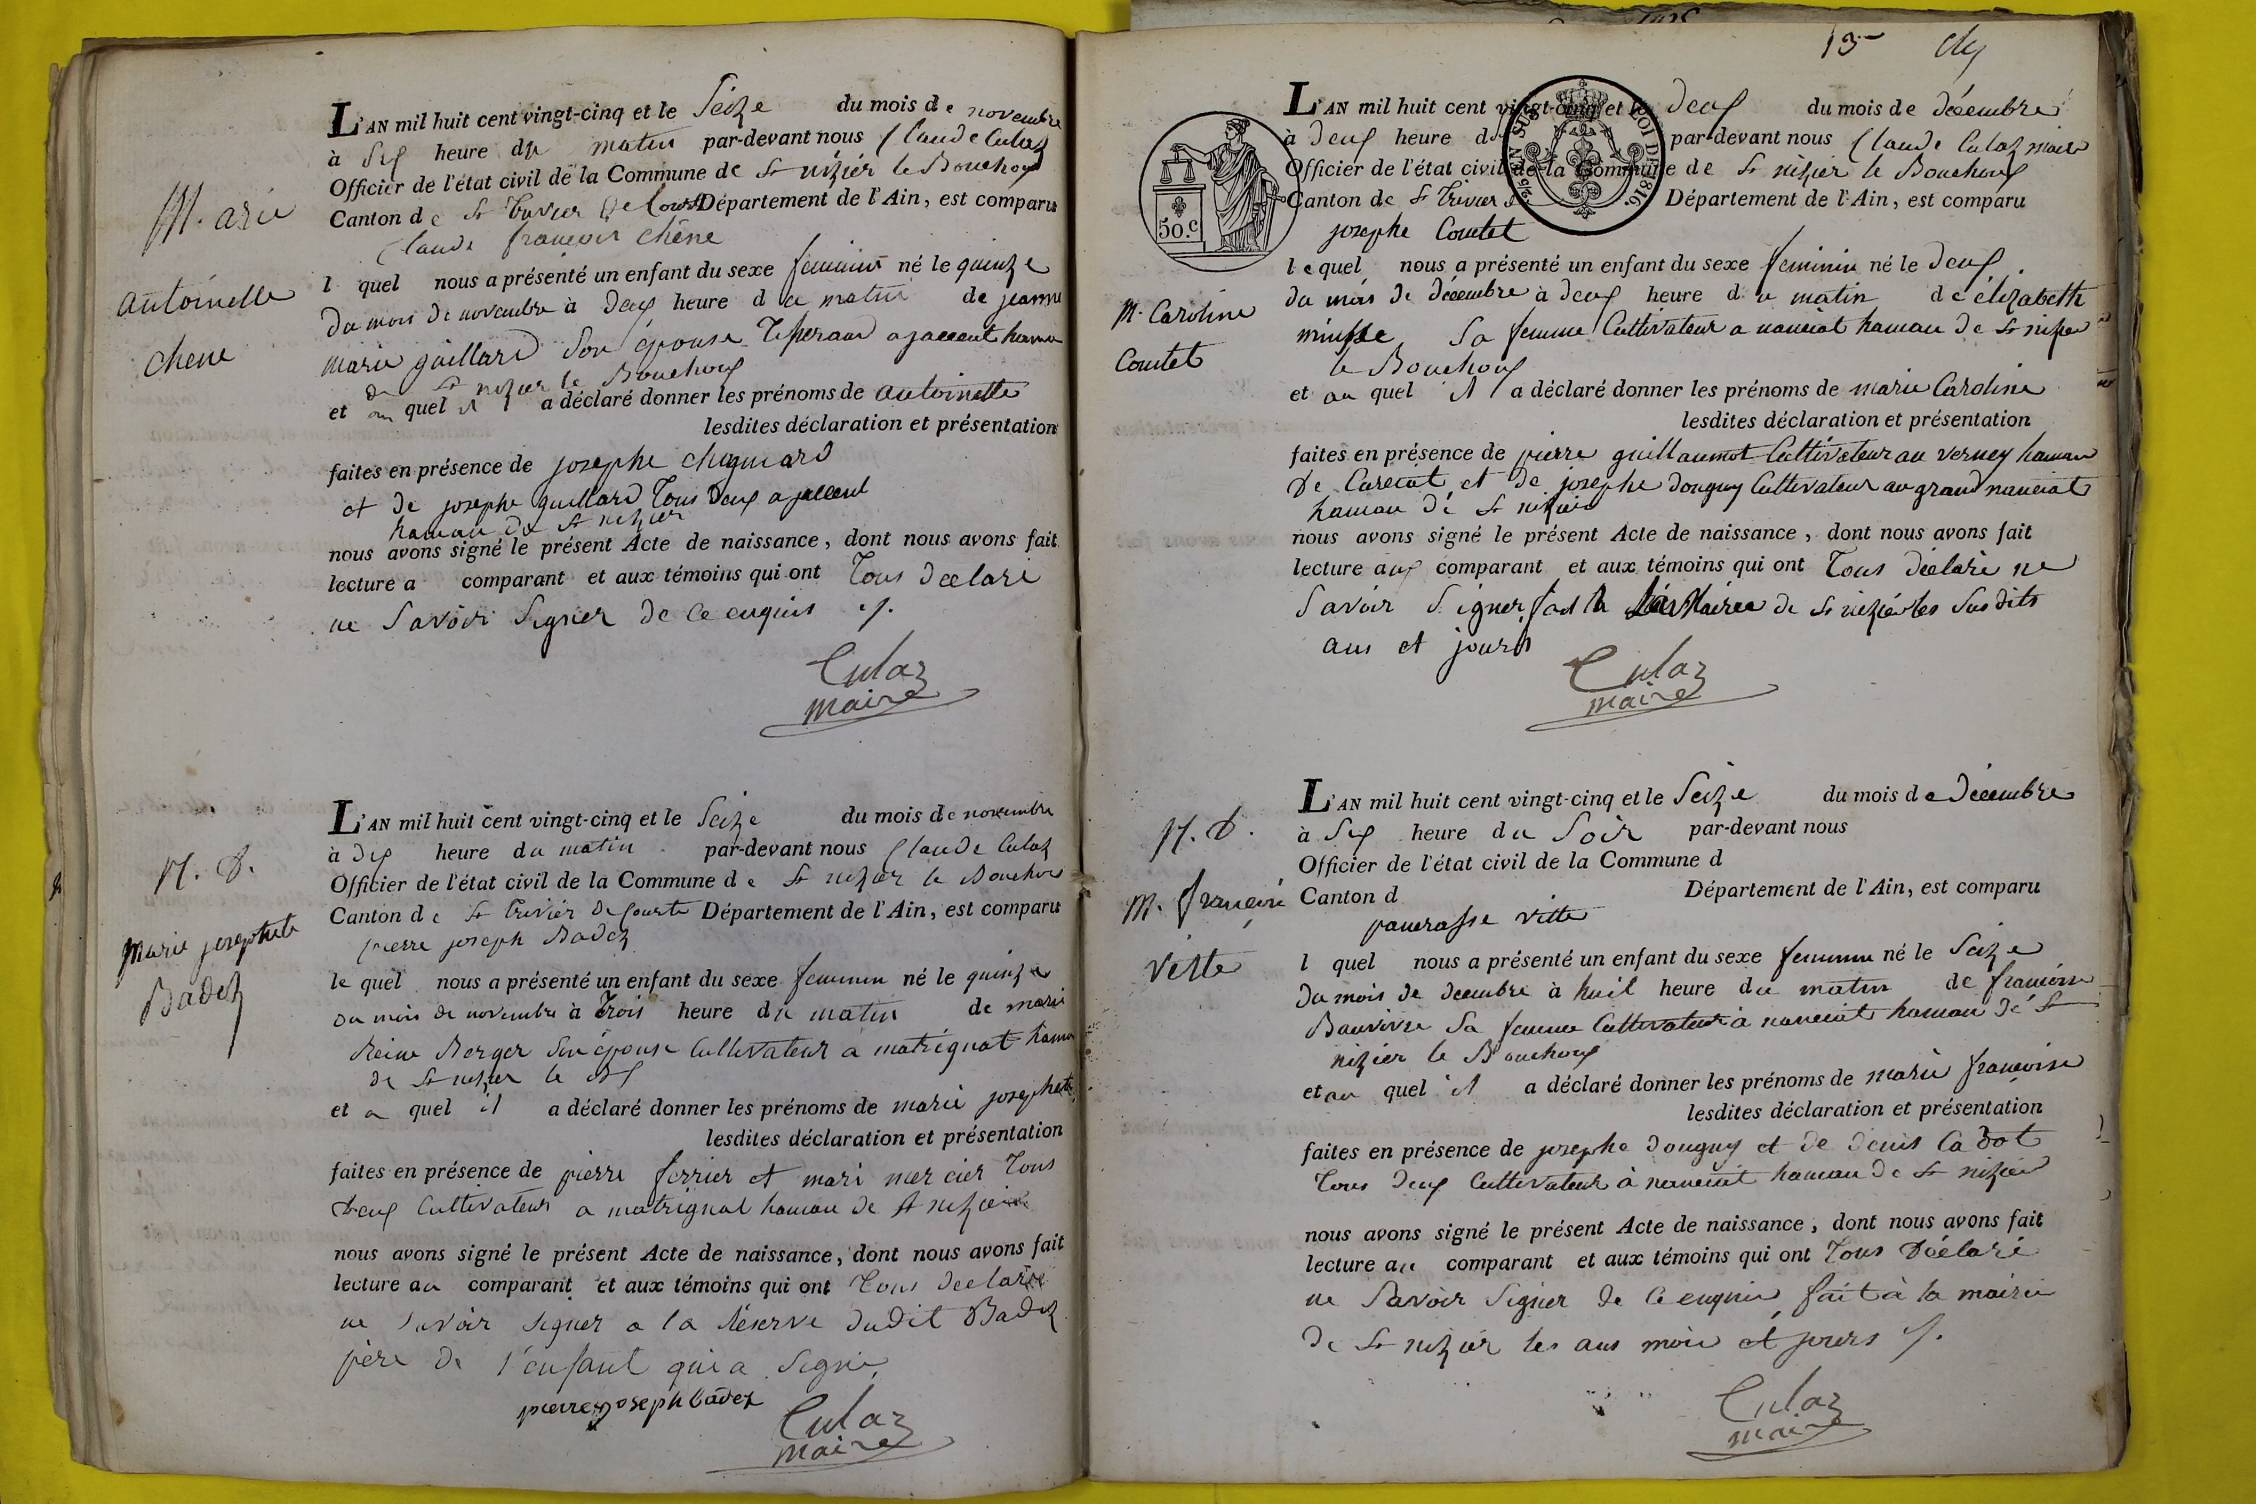 M. arie
antoinelle
chene
L'AN mil huit cent vingt-cinq et le Seize du mois de novembre
à Six heure du matin par-devant nous Claude Culaz
Officier de l'état civil de la Commune de St nizier le Bouchoux
Canton de St trivier De Courte Département de l'Ain, est comparu
Claude françois chêne
l quel nous a présenté un enfant du sexe feminin né le quinze
Du mois de novembre à Deux heure du matin de jeanne
marie guillard Son épouse a jassent hameau
de St nizier le Bouchoux
et au quel il a déclaré donner les prénoms de antoinette
lesdites déclaration et présentation
faites en présence de josephe chignard
et de josephe guillard Tous Deux a jassent
hameau de St nizier
nous avons signé le présent Acte de naissance, dont nous avons fait
lecture a comparant et aux témoins qui ont Tous Déclaré
ne Savoir Signer de ce enquis ./.
Culaz
maire
N. D.
Marie josephete
Badez
L'AN mil huit cent vingt-cinq et le Seize du mois de novembre
à Dix heure du matin par-devant nous Claude Culaz
Officier de l'état civil de la Commune de St nizier le Bouchoux
Canton de St trivier De Courte Département de l'Ain, est comparu
pierre joseph Badez
le quel nous a présenté un enfant du sexe feminin né le quinze
Du mois de novembre à Trois heure du matin de marie
Reine Berger Son épouse Cultivateur a matrignat hameau
de St nizier le Bx
et a quel il a déclaré donner les prénoms de marie josephete
lesdites déclaration et présentation
faites en présence de pierre ferrier et mari mercier Tous
Deux Cultivateur a matrignat hameau de St nizier
nous avons signé le présent Acte de naissance, dont nous avons fait
lecture au comparant et aux témoins qui ont Tous Déclaré
ne Savoir signer a la Réserve dudit Badez
père de l'enfant qui a Signé
pierre joseph badez
Culaz
maire
13
L'AN mil huit cent vingt-cinq et le deux du mois de décembre
à deux heure d par-devant nous Claude Culaz maire
Officier de l'état civil de la Commune de St nizier le Bouchoux
Canton de St Trivier Département de l'Ain, est comparu
50.c
EN SUS LOI DE 1816
josephe Comtet
M. Caroline
Comtet
le quel nous a présenté un enfant du sexe feminin né le deux
du mois de décembre à deux heure du matin de élizabeth
Sa femme Cultivateur a nanciat hameau de St nizier
le Bouchoux
et au quel il a déclaré donner les prénoms de marie Caroline
lesdites déclaration et présentation
faites en présence de pierre guillaumot Cultivateur au verney hameau
De Curciat et de josephe douguy Cultivateur au grand nanciat
hameau de St nizier
nous avons signé le présent Acte de naissance, dont nous avons fait
lecture aux comparant et aux témoins qui ont Tous déclaré ne
Savoir Signer fait à la Mairie de St nizier les Susdits
ans et jours
Culaz
maire
N. D.
M. françoise
Vitte
L'AN mil huit cent vingt-cinq et le Seize du mois de Décembre
à Six heure du Soir par-devant nous
Officier de l'état civil de la Commune d
Canton d Département de l'Ain, est comparu
pancrasse vitte
l quel nous a présenté un enfant du sexe feminin né le Seize
Du mois de décembre à huit heure du matin de françoise
Bauvivre Sa femme Cultivateur à nanciat hameau de St
nizier le Bouchoux
et au quel il a déclaré donner les prénoms de marie françoise
lesdites déclaration et présentation
faites en présence de josephe douguy et de denis Cadot
Tous Deux Cultivateur à nanciat hameau de St nizier
nous avons signé le présent Acte de naissance, dont nous avons fait
lecture au comparant et aux témoins qui ont Tous Déclaré
ne Savoir Signer de ce enquis fait à la mairie
De St nizier les ans mois et jours ./.
Culaz
maire